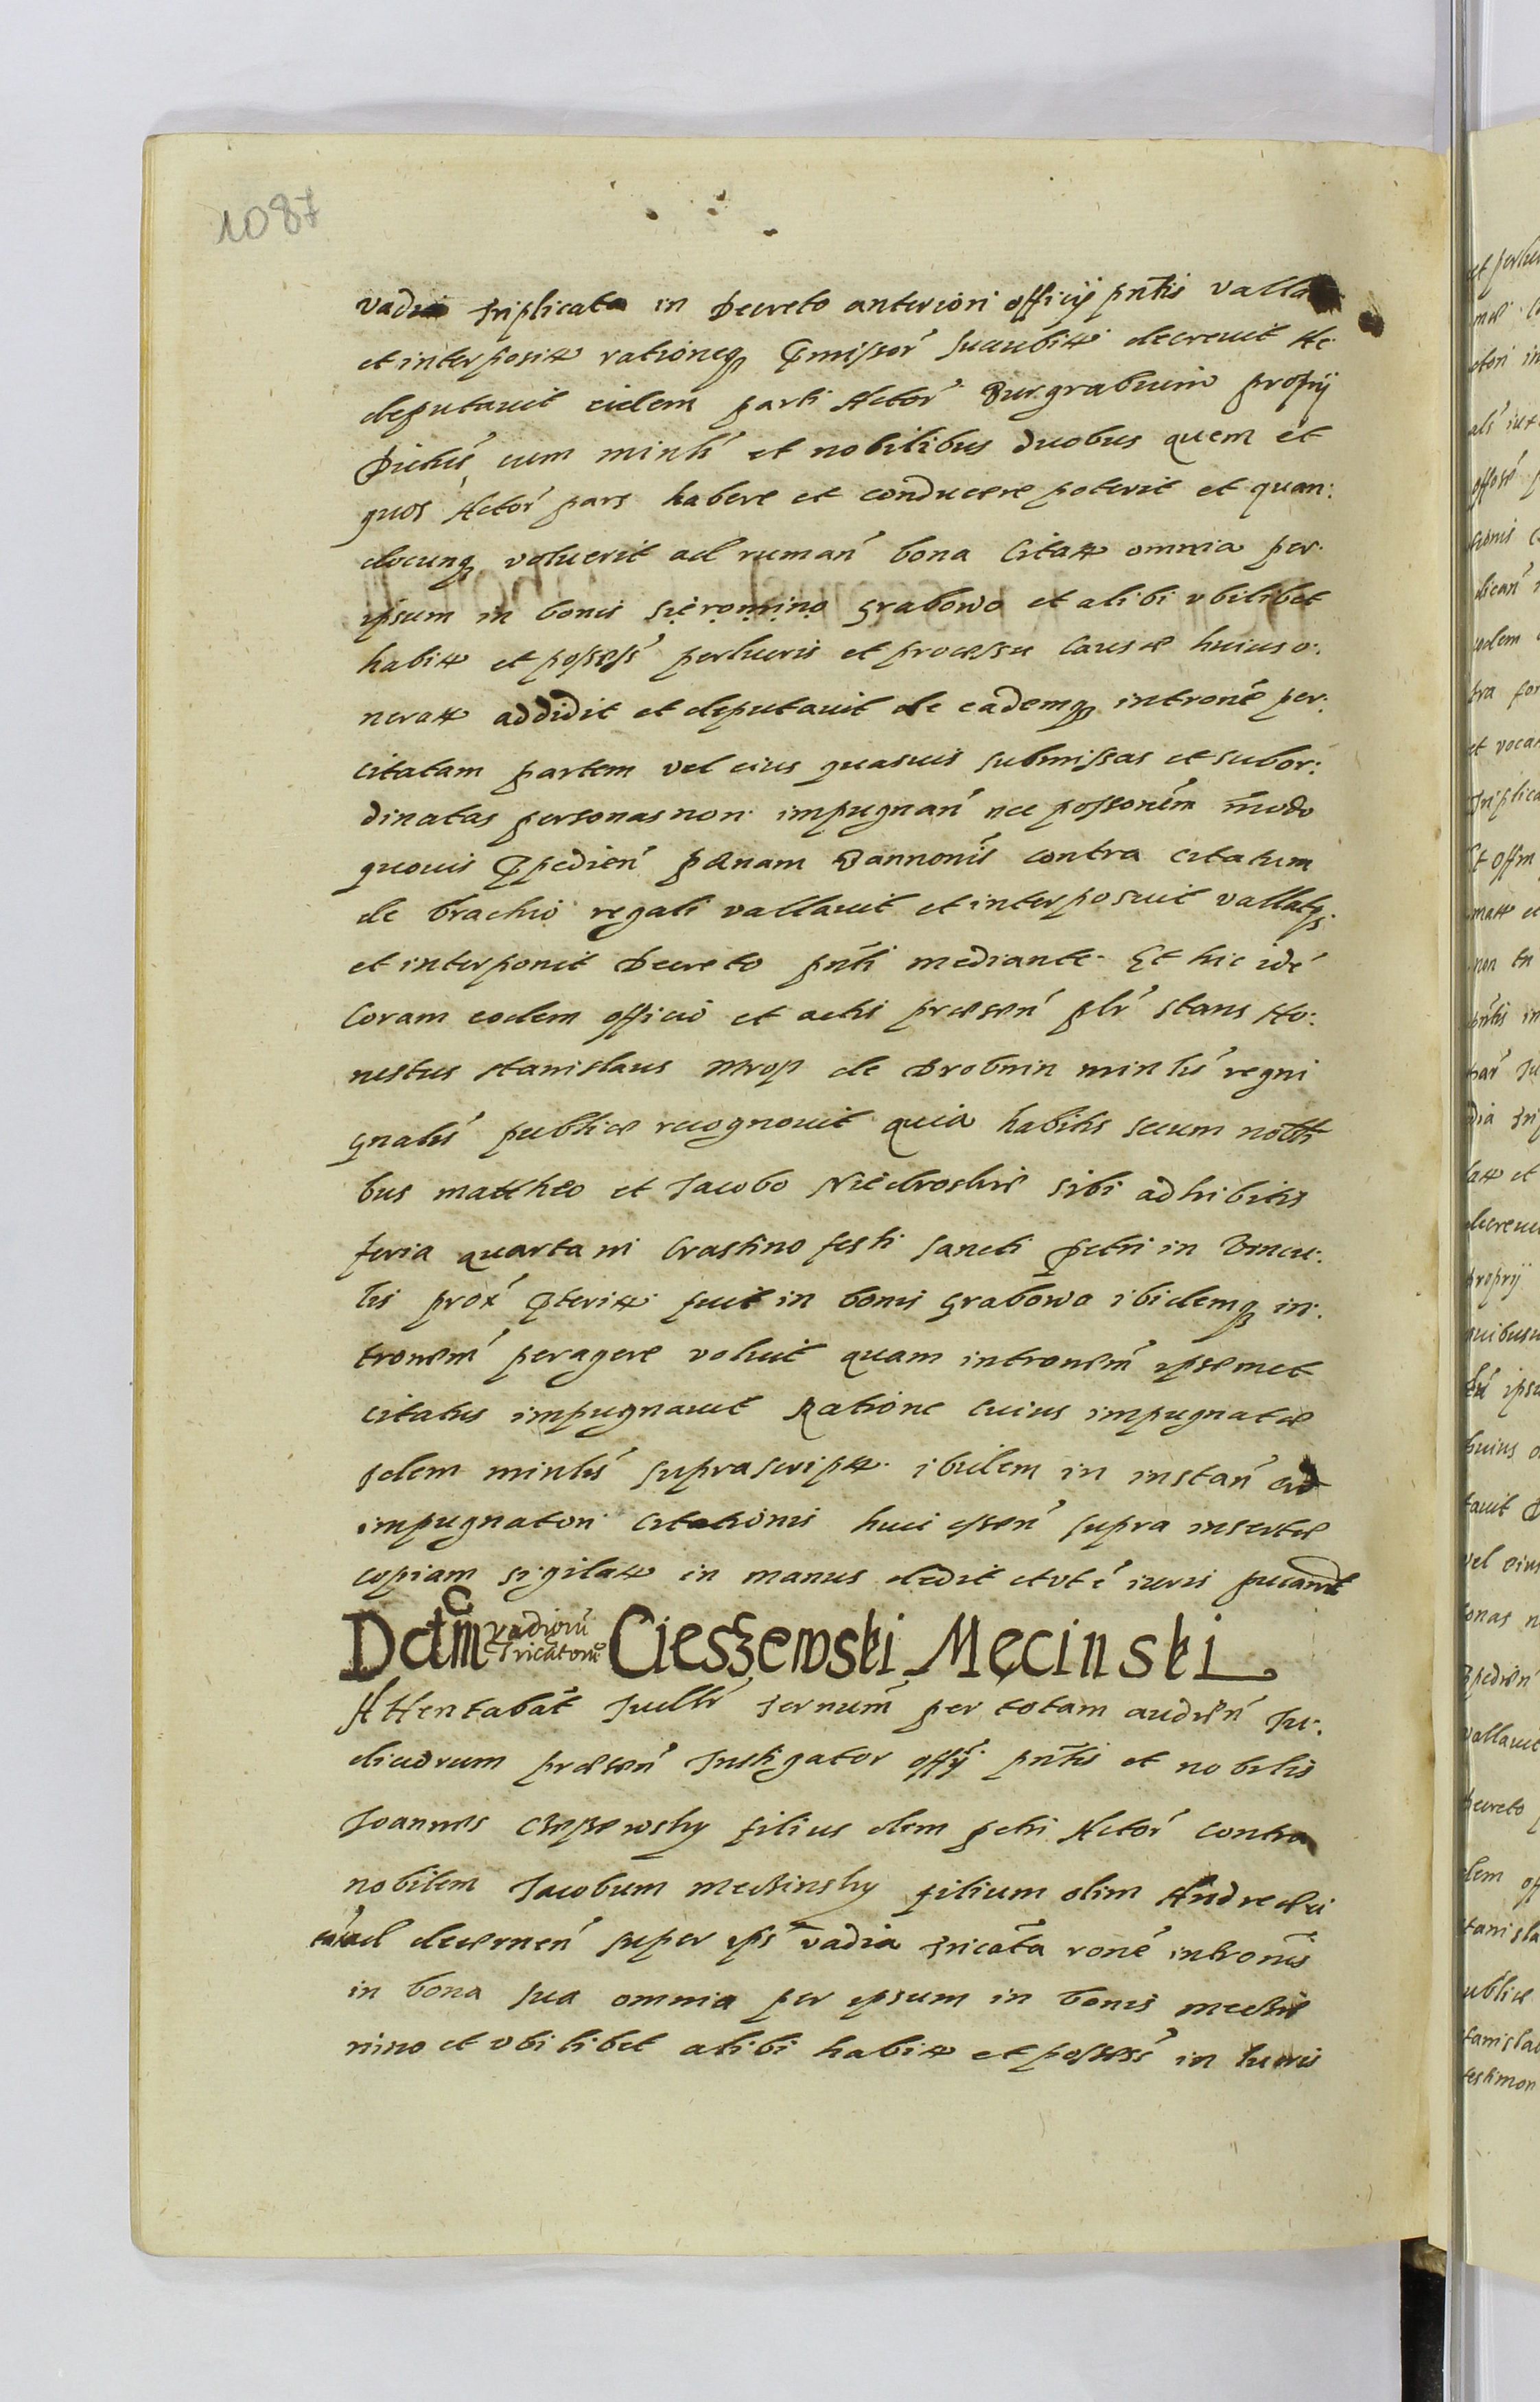 1087
vadia triplicata in Decreto anteriori officij pntis valla
et interposita rationeq pmissor succubita decrevit Ac
deputavit eidem parti Actor Burgrabium proprij
Districtus cum minli et nobilibus duobus quem et
quos Actor pars habere et conducere poterit et quan:
docunq voluerit ad ruman bona Citati omnia per
ipsum in bonis Sieromino Grabowo et alibi vbilibet
habita et possess perlucris et processu causae huius o:
nerata addidit et deputavit de eademq introne per:
citatam partem vel eius quasuis submissas et subor:
dinatas personas non impugnan nec possonem modo
quouis Impedien paenam Bannonis contra citatum
de brachio regali vallavit et interposuit vallatq
et interponit Decreto pnti mediante. Et hic ide
Coram eodem officio et actis praesen plr stans Ho:
nestus Stanislaus Mrop de Drobnin minlis regni
gnalis publice recognovit quia habitis secum nobli
bus Mattheo et Jacobo Niedroskie sibi adhibitis
feria quarta in Crastino festi sancti Petri in Vincu:
lis prox pterita fuit in bonis Grabowo ibidemq in:
tronem peragere voluit quam intronem ipsemet
citatus impugnavit Ratione cuius impugnatae
idem minlis suprascripta ibidem in instan ad
impugnatori citationis huic essen supra insertae
copiam sigilata in manus dedit
Dctm vadioru Tricatoru Cieszewski Męcinski
Attentabat Judlr Ternum per totam audien Ju:
diciorum praesen Instigator offy pntis et nobilis
Joannes Czeszewsky filius olem Petri Actor contra
nobilem Jacobum Meczinsky filium olim Andreae ci
tatu ad decernen super ips vadia tricata rone intronis
in bona sua omnia per ipsum in bonis Meczie
nino et vbilibet alibi habita et possess in lucris